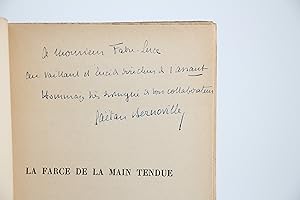 à Monsieur Fabre-Luce
au vaillant et lucide directeur de l'assaut
Hommage très de son collaborateur
Gaëtan Bernoville
LA FARCE DE LA MAIN TENDUE